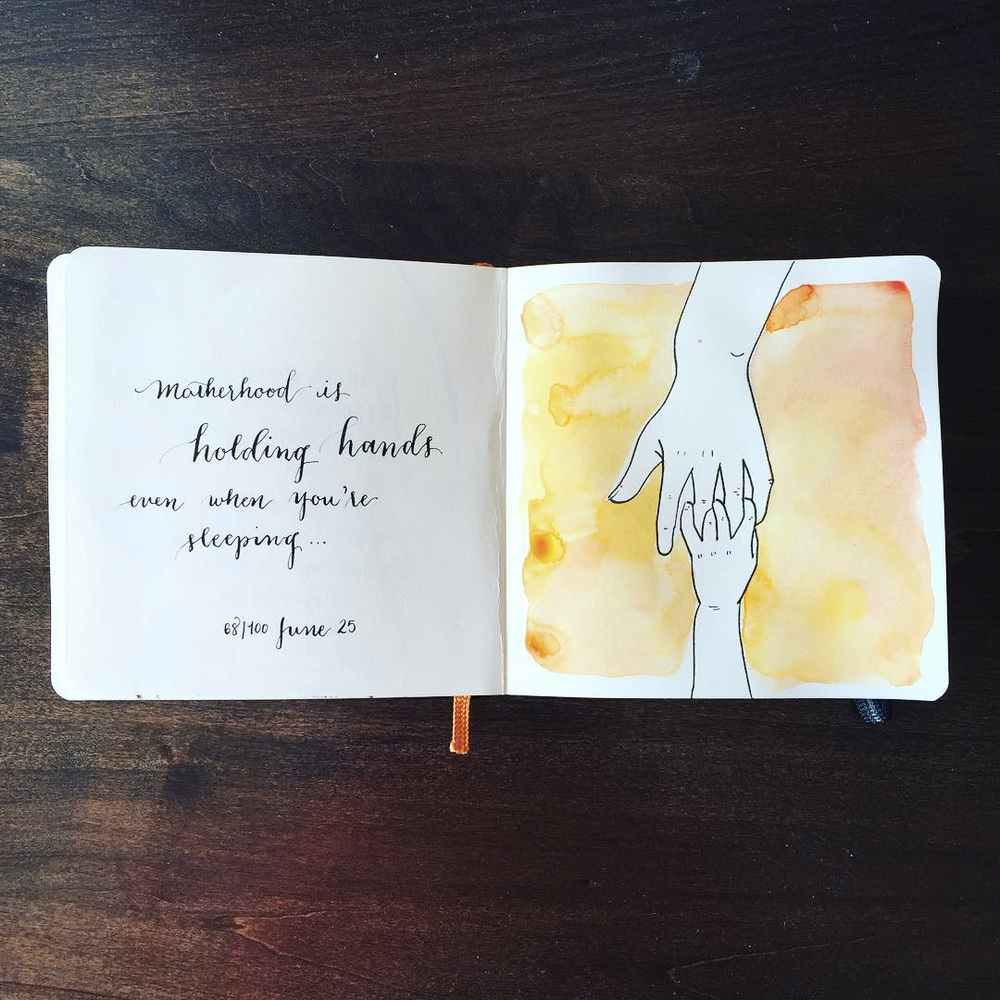 Motherhood is
holding hands
even when you're
sleeping...
68/100 June 25